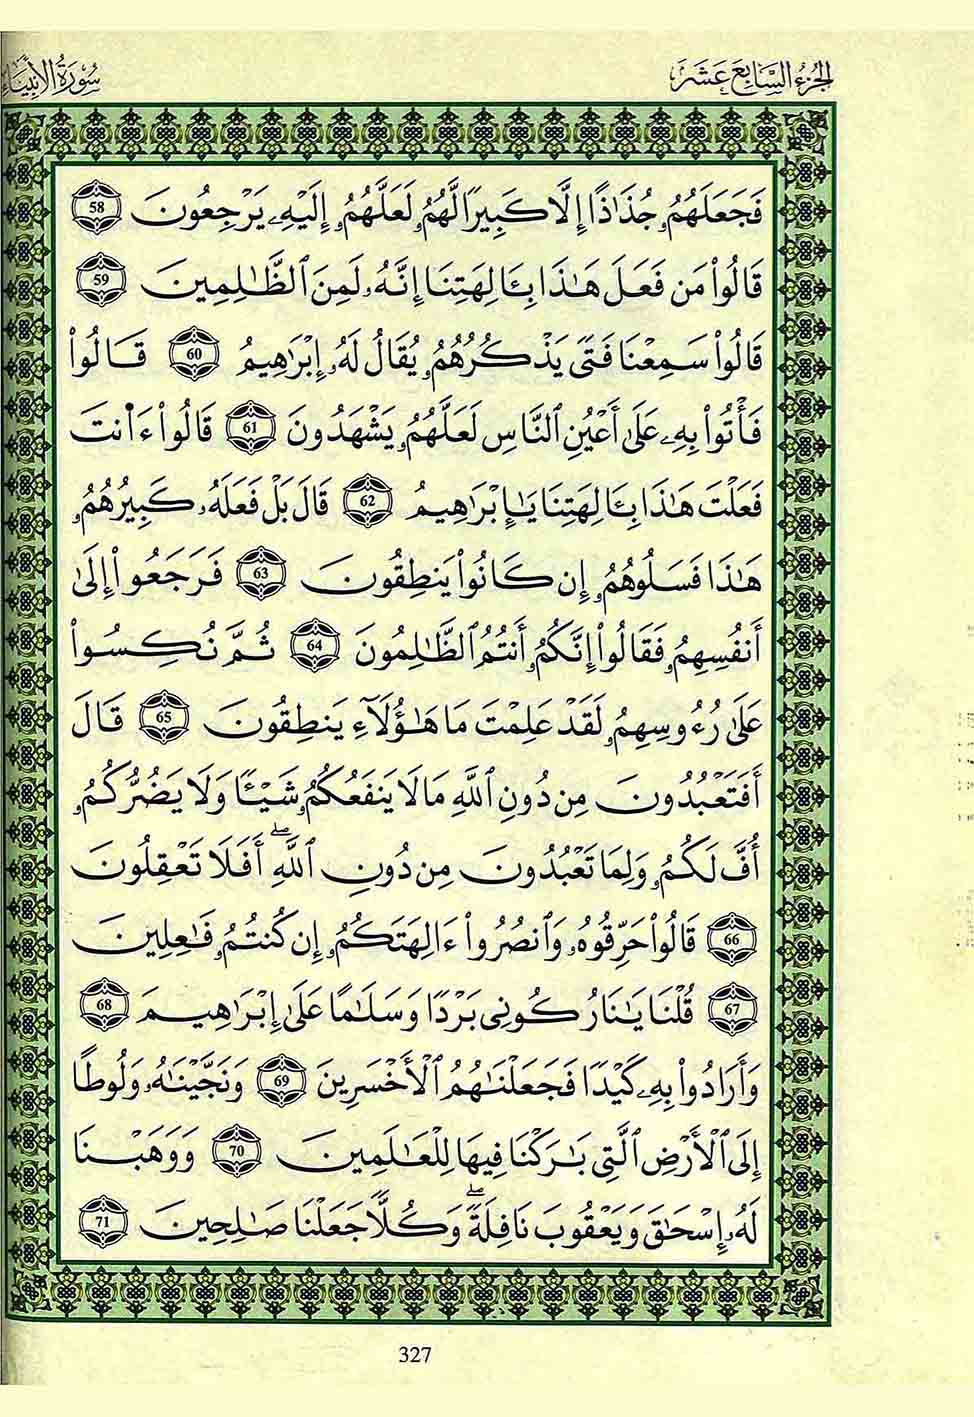 الجزء السابع عشر
سورة الأنبياء
فَجَعَلَهُمُۥ جُذَٰذًا إِلَّا كَبِيرًا لَّهُمُۥ لَعَلَّهُمُۥٓ إِلَيْهِۦ يَرْجِعُونَ 58
قَالُوا۟ مَن فَعَلَ هَٰذَا بِـَٔالِهَتِنَا إِنَّهُۥ لَمِنَ ٱلظَّٰلِمِينَ 59
قَالُوا۟ سَمِعْنَا فَتًى يَذْكُرُهُمُۥ يُقَالُ لَهُۥ إِبْرَٰهِيمُ 60 قَالُوا۟
فَأْتُوا۟ بِهِۦ عَلَىٰ أَعْيُنِ ٱلنَّاسِ لَعَلَّهُمُۥ يَشْهَدُونَ 61 قَالُوا۟ ءَا۬نتَ
فَعَلْتَ هَٰذَا بِـَٔالِهَتِنَا يَٰإِبْرَٰهِيمُ 62 قَالَ بَلْ فَعَلَهُۥ كَبِيرُهُمُۥ
هَٰذَا فَسَلُوهُمُۥ إِن كَانُوا۟ يَنطِقُونَ 63 فَرَجَعُوا۟ إِلَىٰ
أَنفُسِهِمُۥ فَقَالُوا۟ إِنَّكُمُۥ أَنتُمُ ٱلظَّٰلِمُونَ 64 ثُمَّ نُكِسُوا۟
عَلَىٰ رُءُوسِهِمُۥ لَقَدْ عَلِمْتَ مَا هَٰؤُلَآءِ يَنطِقُونَ 65 قَالَ
أَفَتَعْبُدُونَ مِن دُونِ ٱللَّهِ مَا لَا يَنفَعُكُمُۥ شَيْـًٔا وَلَا يَضُرُّكُمُۥ
أُفَّ لَكُمُۥ وَلِمَا تَعْبُدُونَ مِن دُونِ ٱللَّهِ ۖ أَفَلَا تَعْقِلُونَ
66 قَالُوا۟ حَرِّقُوهُۥ وَٱنصُرُوا۟ ءَالِهَتَكُمُۥ إِن كُنتُمُۥ فَٰعِلِينَ
67 قُلْنَا يَٰنَارُ كُونِى بَرْدًا وَسَلَٰمًا عَلَىٰ إِبْرَٰهِيمَ 68
وَأَرَادُوا۟ بِهِۦ كَيْدًا فَجَعَلْنَٰهُمُ ٱلْأَخْسَرِينَ 69 وَنَجَّيْنَٰهُۥ وَلُوطًا
إِلَى ٱلْأَرْضِ ٱلَّتِى بَٰرَكْنَا فِيهَا لِلْعَٰلَمِينَ 70 وَوَهَبْنَا
لَهُۥ إِسْحَٰقَ وَيَعْقُوبَ نَافِلَةً ۖ وَكُلًّا جَعَلْنَا صَٰلِحِينَ 71
327